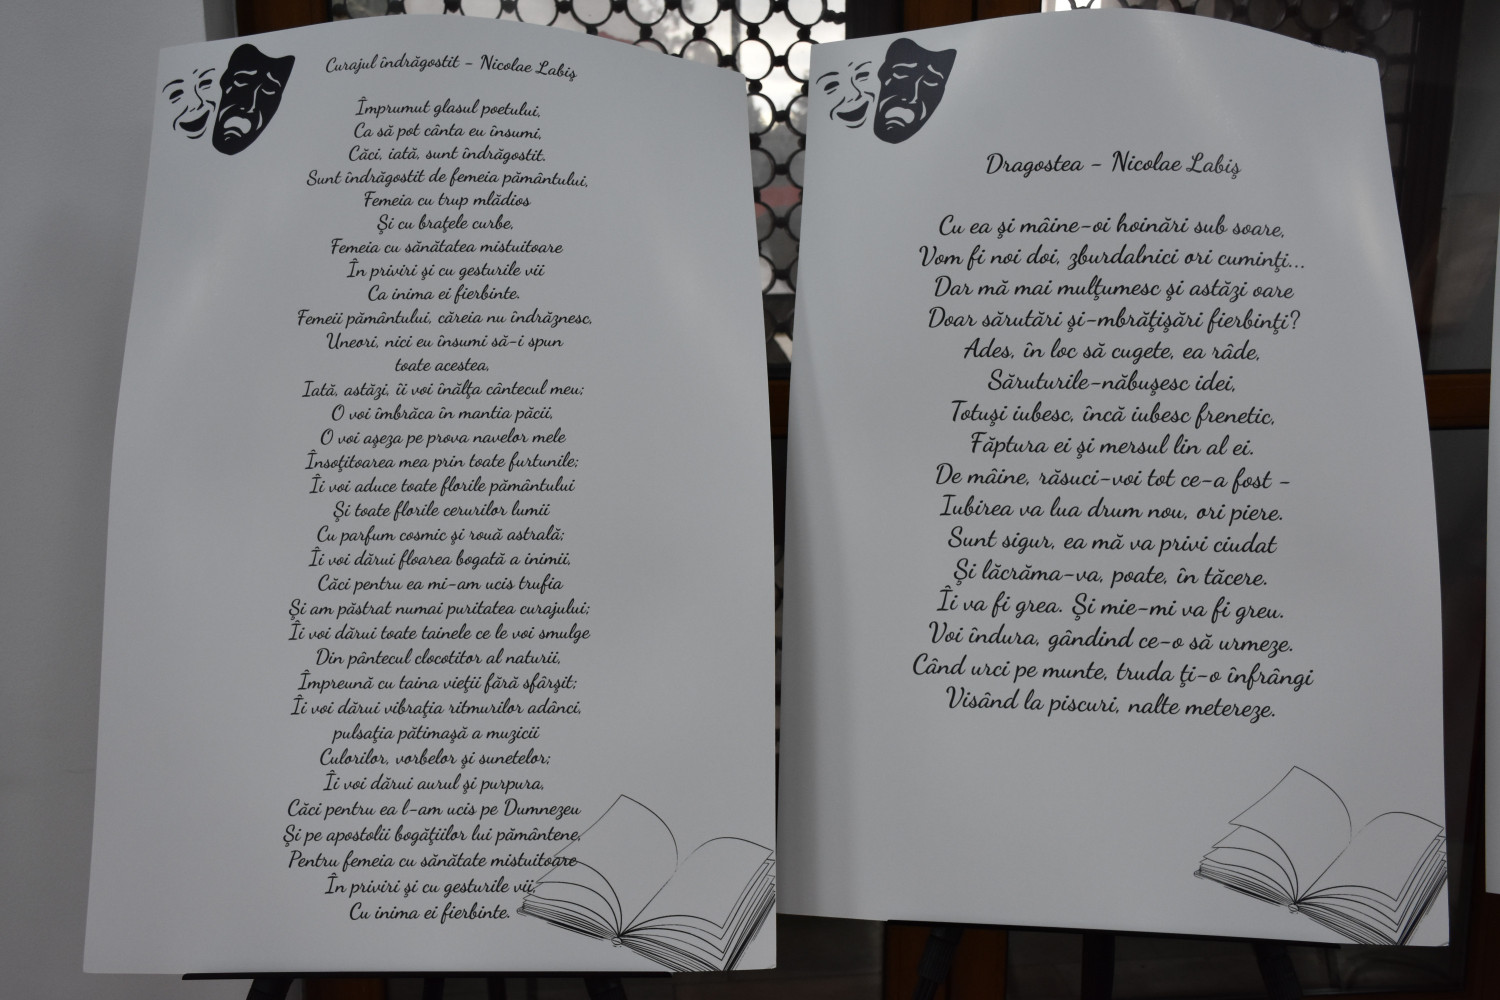 Curajul îndrăgostit - Nicolae Labiş
Împrumut glasul poetului,
Ca să pot cânta eu însumi,
Căci, iată, sunt îndrăgostit.
Sunt îndrăgostit de femeia pământului,
Femeia cu trup mlădios
Şi cu braţele curbe,
Femeia cu sănătatea mistuitoare
În priviri şi cu gesturile vii
Ca inima ei fierbinte.
Femeii pământului, căreia nu îndrăznesc,
Uneori, nici eu însumi să-i spun
toate acestea,
Iată, astăzi, îi voi înălţa cântecul meu;
O voi îmbrăca în mantia păcii,
O voi aşeza pe prova navelor mele
Însoţitoarea mea prin toate furtunile;
Îi voi aduce toate florile pământului
Şi toate florile cerurilor lumii
Cu parfum cosmic şi rouă astrală;
Îi voi dărui floarea bogată a inimii,
Căci pentru ea mi-am ucis trufia
Şi am păstrat numai puritatea curajului;
Îi voi dărui toate tainele ce le voi smulge
Din pântecul clocotitor al naturii,
Împreună cu taina vieţii fără sfârşit;
Îi voi dărui vibraţia ritmurilor adânci,
pulsaţia pătimaşă a muzicii
Culorilor, vorbelor şi sunetelor;
Îi voi dărui aurul şi purpura,
Căci pentru ea l-am ucis pe Dumnezeu
Şi pe apostolii bogăţiilor lui pământene,
Pentru femeia cu sănătate mistuitoare
În priviri şi cu gesturile vii,
Cu inima ei fierbinte.
Dragostea - Nicolae Labiş
Cu ea şi mâine-oi hoinări sub soare,
Vom fi noi doi, zburdalnici ori cuminţi...
Dar mă mai mulţumesc şi astăzi oare
Doar sărutări şi-mbrăţişări fierbinţi?
Ades, în loc să cugete, ea râde,
Săruturile-năbuşesc idei,
Totuşi iubesc, încă iubesc frenetic,
Făptura ei şi mersul lin al ei.
De mâine, răsuci-voi tot ce-a fost -
Iubirea va lua drum nou, ori piere.
Sunt sigur, ea mă va privi ciudat
Şi lăcrăma-va, poate, în tăcere.
Îi va fi grea. Şi mie-mi va fi greu.
Voi îndura, gândind ce-o să urmeze.
Când urci pe munte, truda ţi-o înfrângi
Visând la piscuri, nalte metereze.